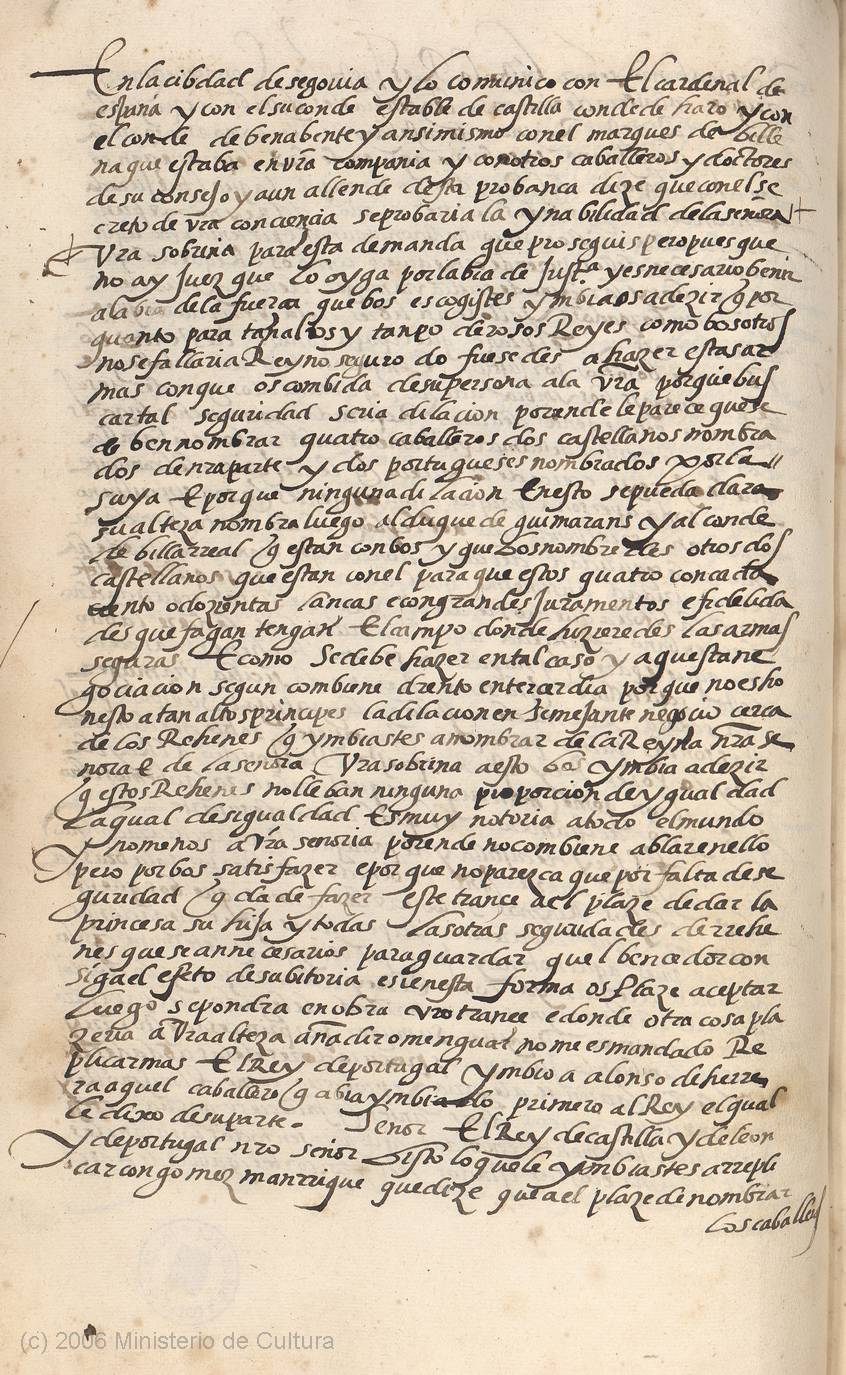 En la cibdad de segovia y lo comunico con El cardenal de
españa y con el su conde estable de castilla conde de haro y con
el conde de benabente y ansimismo con el marques de bille
na que estaba en vra compania y con otros caballeros y doctores
de su consejo y aun allende desta probanca dize que con el se
creto de vra conciencia se probaria la ynabilidad de la señora
vra sobrina para esta demanda que proseguis pero pues que
no ay Juez que lo oyga por la bia de Justa y es necesario benir
a la bia de la fuerca que bos escogistes ymbia os a dezir q por
quanto para tan altos y tan poderosos Reyes como bosotros
no se fallaria Reyno seguro do fuesedes a hazer estas ar
mas con que os combida de su persona a la vra porque bus
car tal seguridad seria dilacion por ende le parece que se
deben nombrar quatro caballeros dos castellanos nombra
dos de vra parte y dos portugueses nombrados por la
suya E porque ninguna dilacion En esto se pueda dar
su alteza nombra luego al duque de guimarans y al conde
de billarreal q estan con bos y que bos nombredes otros dos
castellanos que estan con el para que estos quatro con cada
ciento o dozientas lancas e con grandes Juramentos e fidelida
des que fagan tengan El campo donde hizieredes las armas
seguras E como Se debe hazer en tal caso y aquesta ne
gociacion segun combiene dento en tercer dia porque no es ho
nesto a tan altos principes la dilacion en semejante negocio cerca
de los Rehenes q ymbiastes a nombrar de la Reyna nra se
nora E de la señora vra sobrina a esto bos ymbia a dezir
q estos Rehenes no lleban ninguna proporcion de ygualdad
La qual desigualdad Es muy notoria a todo el mundo
y no menos a vra señoria por ende no combiene ablar en ello
pero por bos satisfazer e porque no parezca que por falta de se
guridad q da de fazer este trance a el plaze de dar la
princesa su hija y todas las otras seguridades de rrehe
nes que sean necesarios para guardar que l bencedor con
siga el efeto de su bitoria e si en esta forma os plaze aceptar
Luego se pondra en obra vro trance e donde otra cosa pla
zeria a vra alteza añadir o menguar no me es mandado Re
plicar mas El Rey de portugal ymbio a alonso de herre
ra aquel caballero q abia ymbiado primero al Rey el qual
le dixo de su parte. Señor El Rey de castilla y de leon
y de portugal nro señor bisto lo que le ymbiastes a rrepli
car con gomez manrrique que dize que a el plaze de nombrar
los caballeros
(c) 2006 Ministerio de Cultura